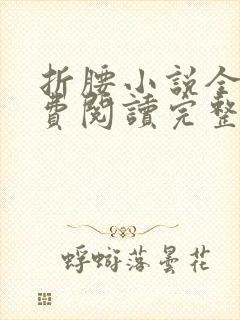 折腰小説全
費閱讀完整
蜉蝣落曇花